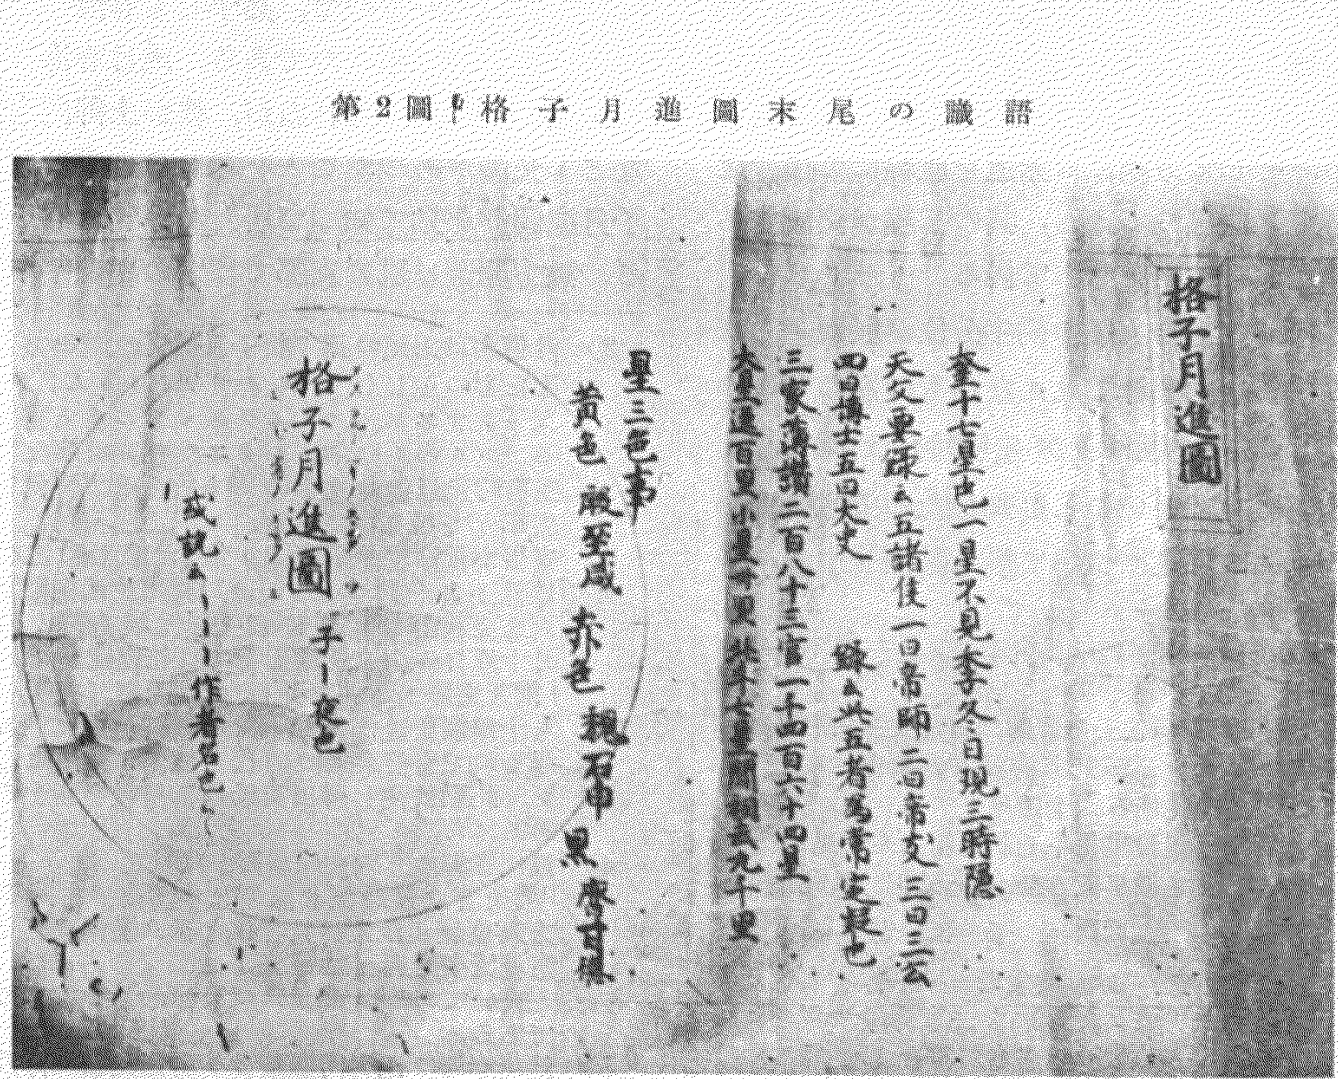 第2圖 格子月進圖末尾の識語
格子月進圖
奎十七星也一星不見季冬日現三時隱
天文要録云五諸侯一曰帝師二曰帝友三曰三公
四曰博士五曰大史 録云此五者爲帝定疑也
三家簿讃二百八十三官一千四百六十四星
大星徑百里小星
星三色事
黄色 殷巫咸 赤色 魏石申 黒 齊甘德
格子月進圖 子一夜也
或説云 作者名也